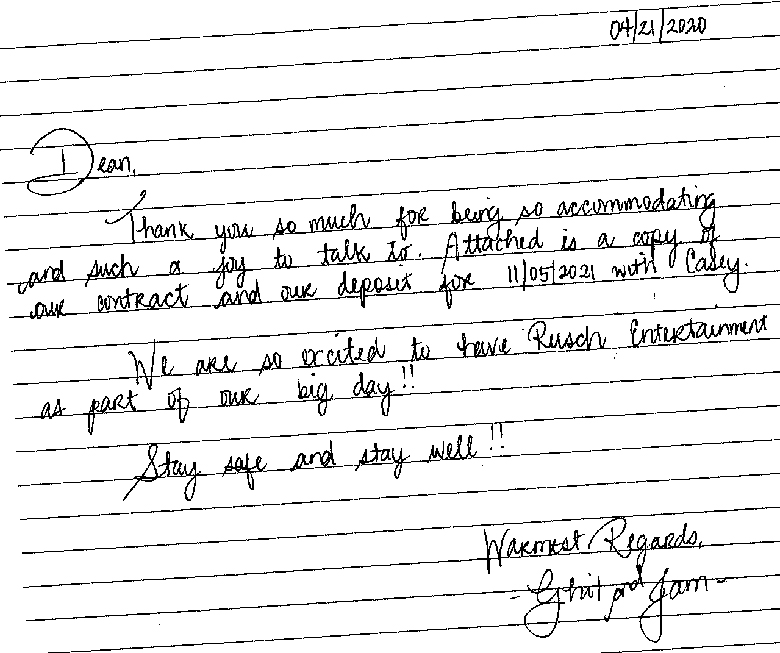 04/21/2020
Dean,
Thank you so much for being so accommodating
and such a joy to talk to. Attached is a copy of
our contract and our deposit for 11/05/2021 with Casey.
We are so excited to have Rusch Entertainment
as part of our big day!!
Stay safe and stay well!!
Warmest Regards,
- and Jam -